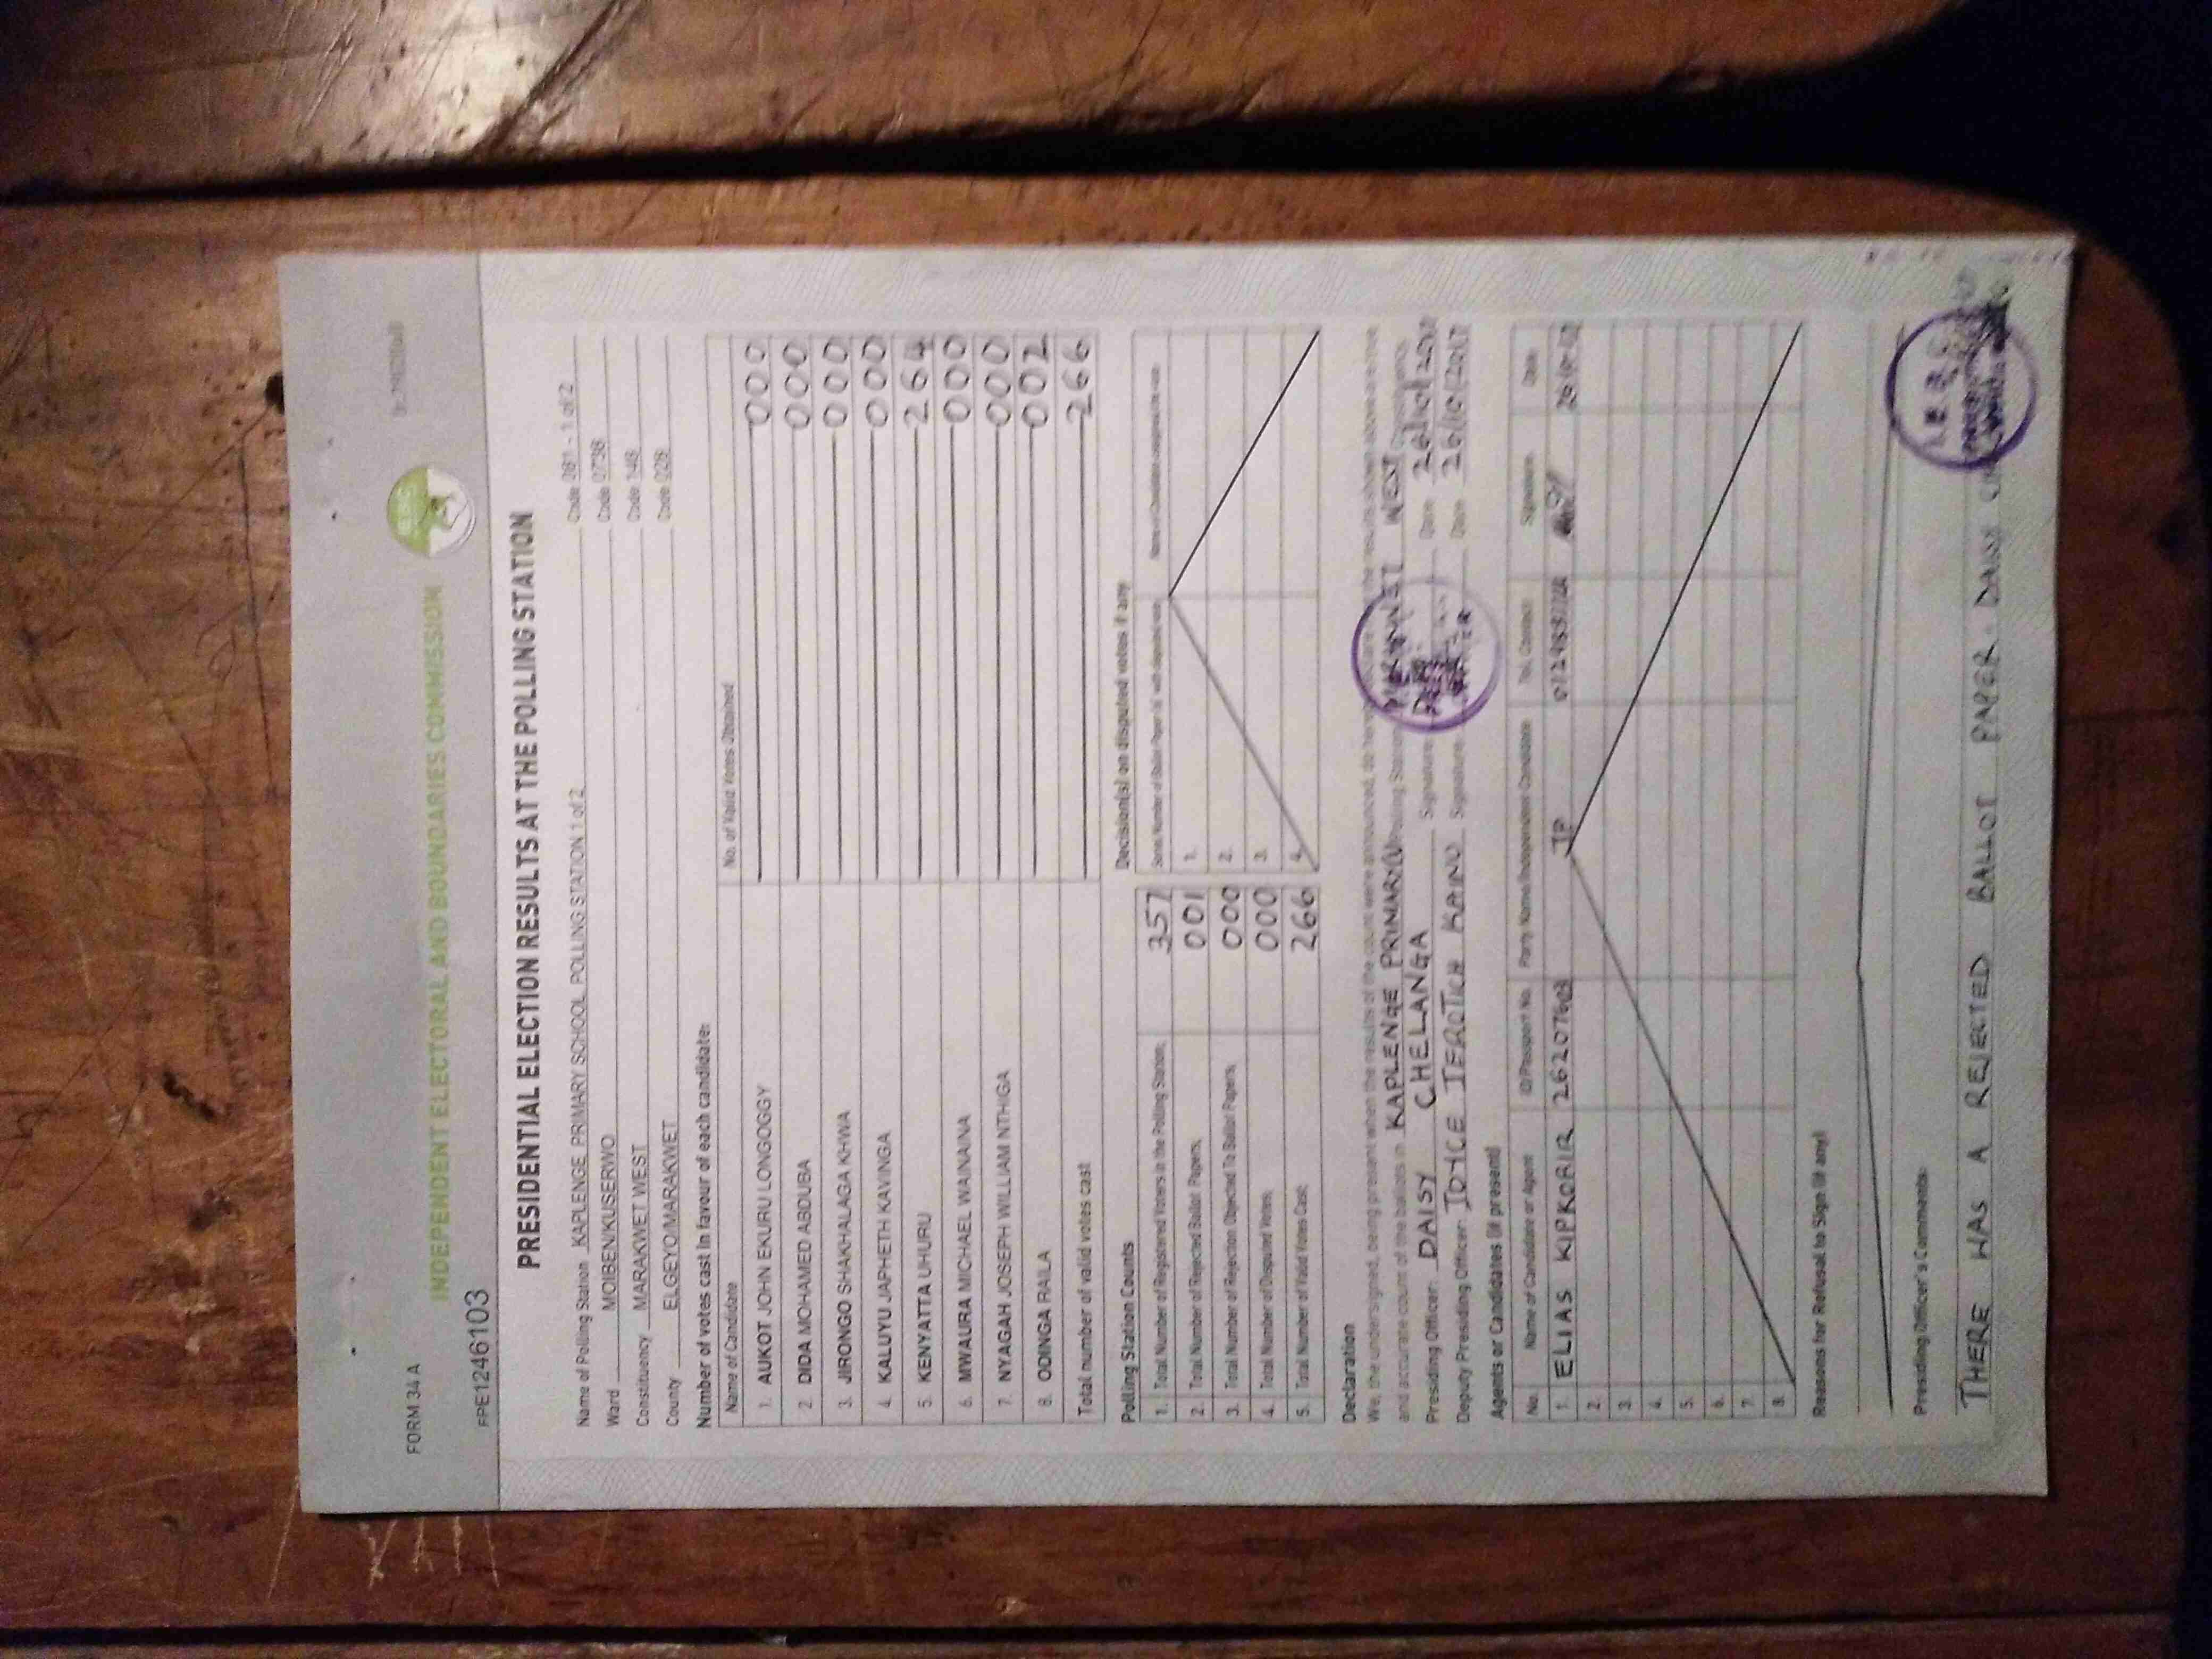 FORM 34 A
INDEPENDENT ELECTORAL AND BOUNDARIES COMMISSION
FPE1246103
PRESIDENTIAL ELECTION RESULTS AT THE POLLING STATION
Name of Polling Station KAPLENGE PRIMARY SCHOOL POLLING STATION 1 of 2 Code 081 - 1 of 2
Ward MOIBEN/KUSERWO Code 0738
Constituency MARAKWET WEST Code 148
County ELGEYO/MARAKWET Code 028
Number of votes cast in favour of each candidate:
Name of Candidate No. of Valid Votes Obtained
1. AUKOT JOHN EKURU LONGOGGY 000
2. DIDA MOHAMED ABDUBA 000
3. JIRONGO SHAKHALAGA KHWA 000
4. KALUYU JAPHETH KAVINGA 000
5. KENYATTA UHURU 264
6. MWAURA MICHAEL WAINAINA 000
7. NYAGAH JOSEPH WILLIAM NTHIGA 000
8. ODINGA RAILA 002
Total number of valid votes cast 266
Polling Station Counts
1. Total Number of Registered Voters in the Polling Station; 357
2. Total Number of Rejected Ballot Papers; 001
3. Total Number of Rejection Objected To Ballot Papers; 000
4. Total Number of Disputed Votes; 000
5. Total Number of Valid Votes Cast; 266
Decision(s) on disputed votes if any
1.
2.
3.
4.
Declaration
We, the undersigned, being present when the results of the count were announced, do hereby declare that the results shown above are true
and accurate count of the ballots in KAPLENGE PRIMARY Polling Station MARAKWET WEST Constituency.
Presiding Officer: DAISY CHELANGA Signature Date 26/10/2017
Deputy Presiding Officer: JOYCE JEROTICH KAINO Signature Date 26/10/2017
Agents or Candidates (if present)
No. Name of Candidate or Agent ID/Passport No. Party Name/Independent Candidate Tel. Contact Signature Date
1. ELIAS KIPKORIR JP
2.
3.
4.
5.
6.
7.
8.
Reasons for Refusal to Sign (if any)
Presiding Officer's Comments:
THERE WAS A REJECTED BALLOT PAPER. DAISY